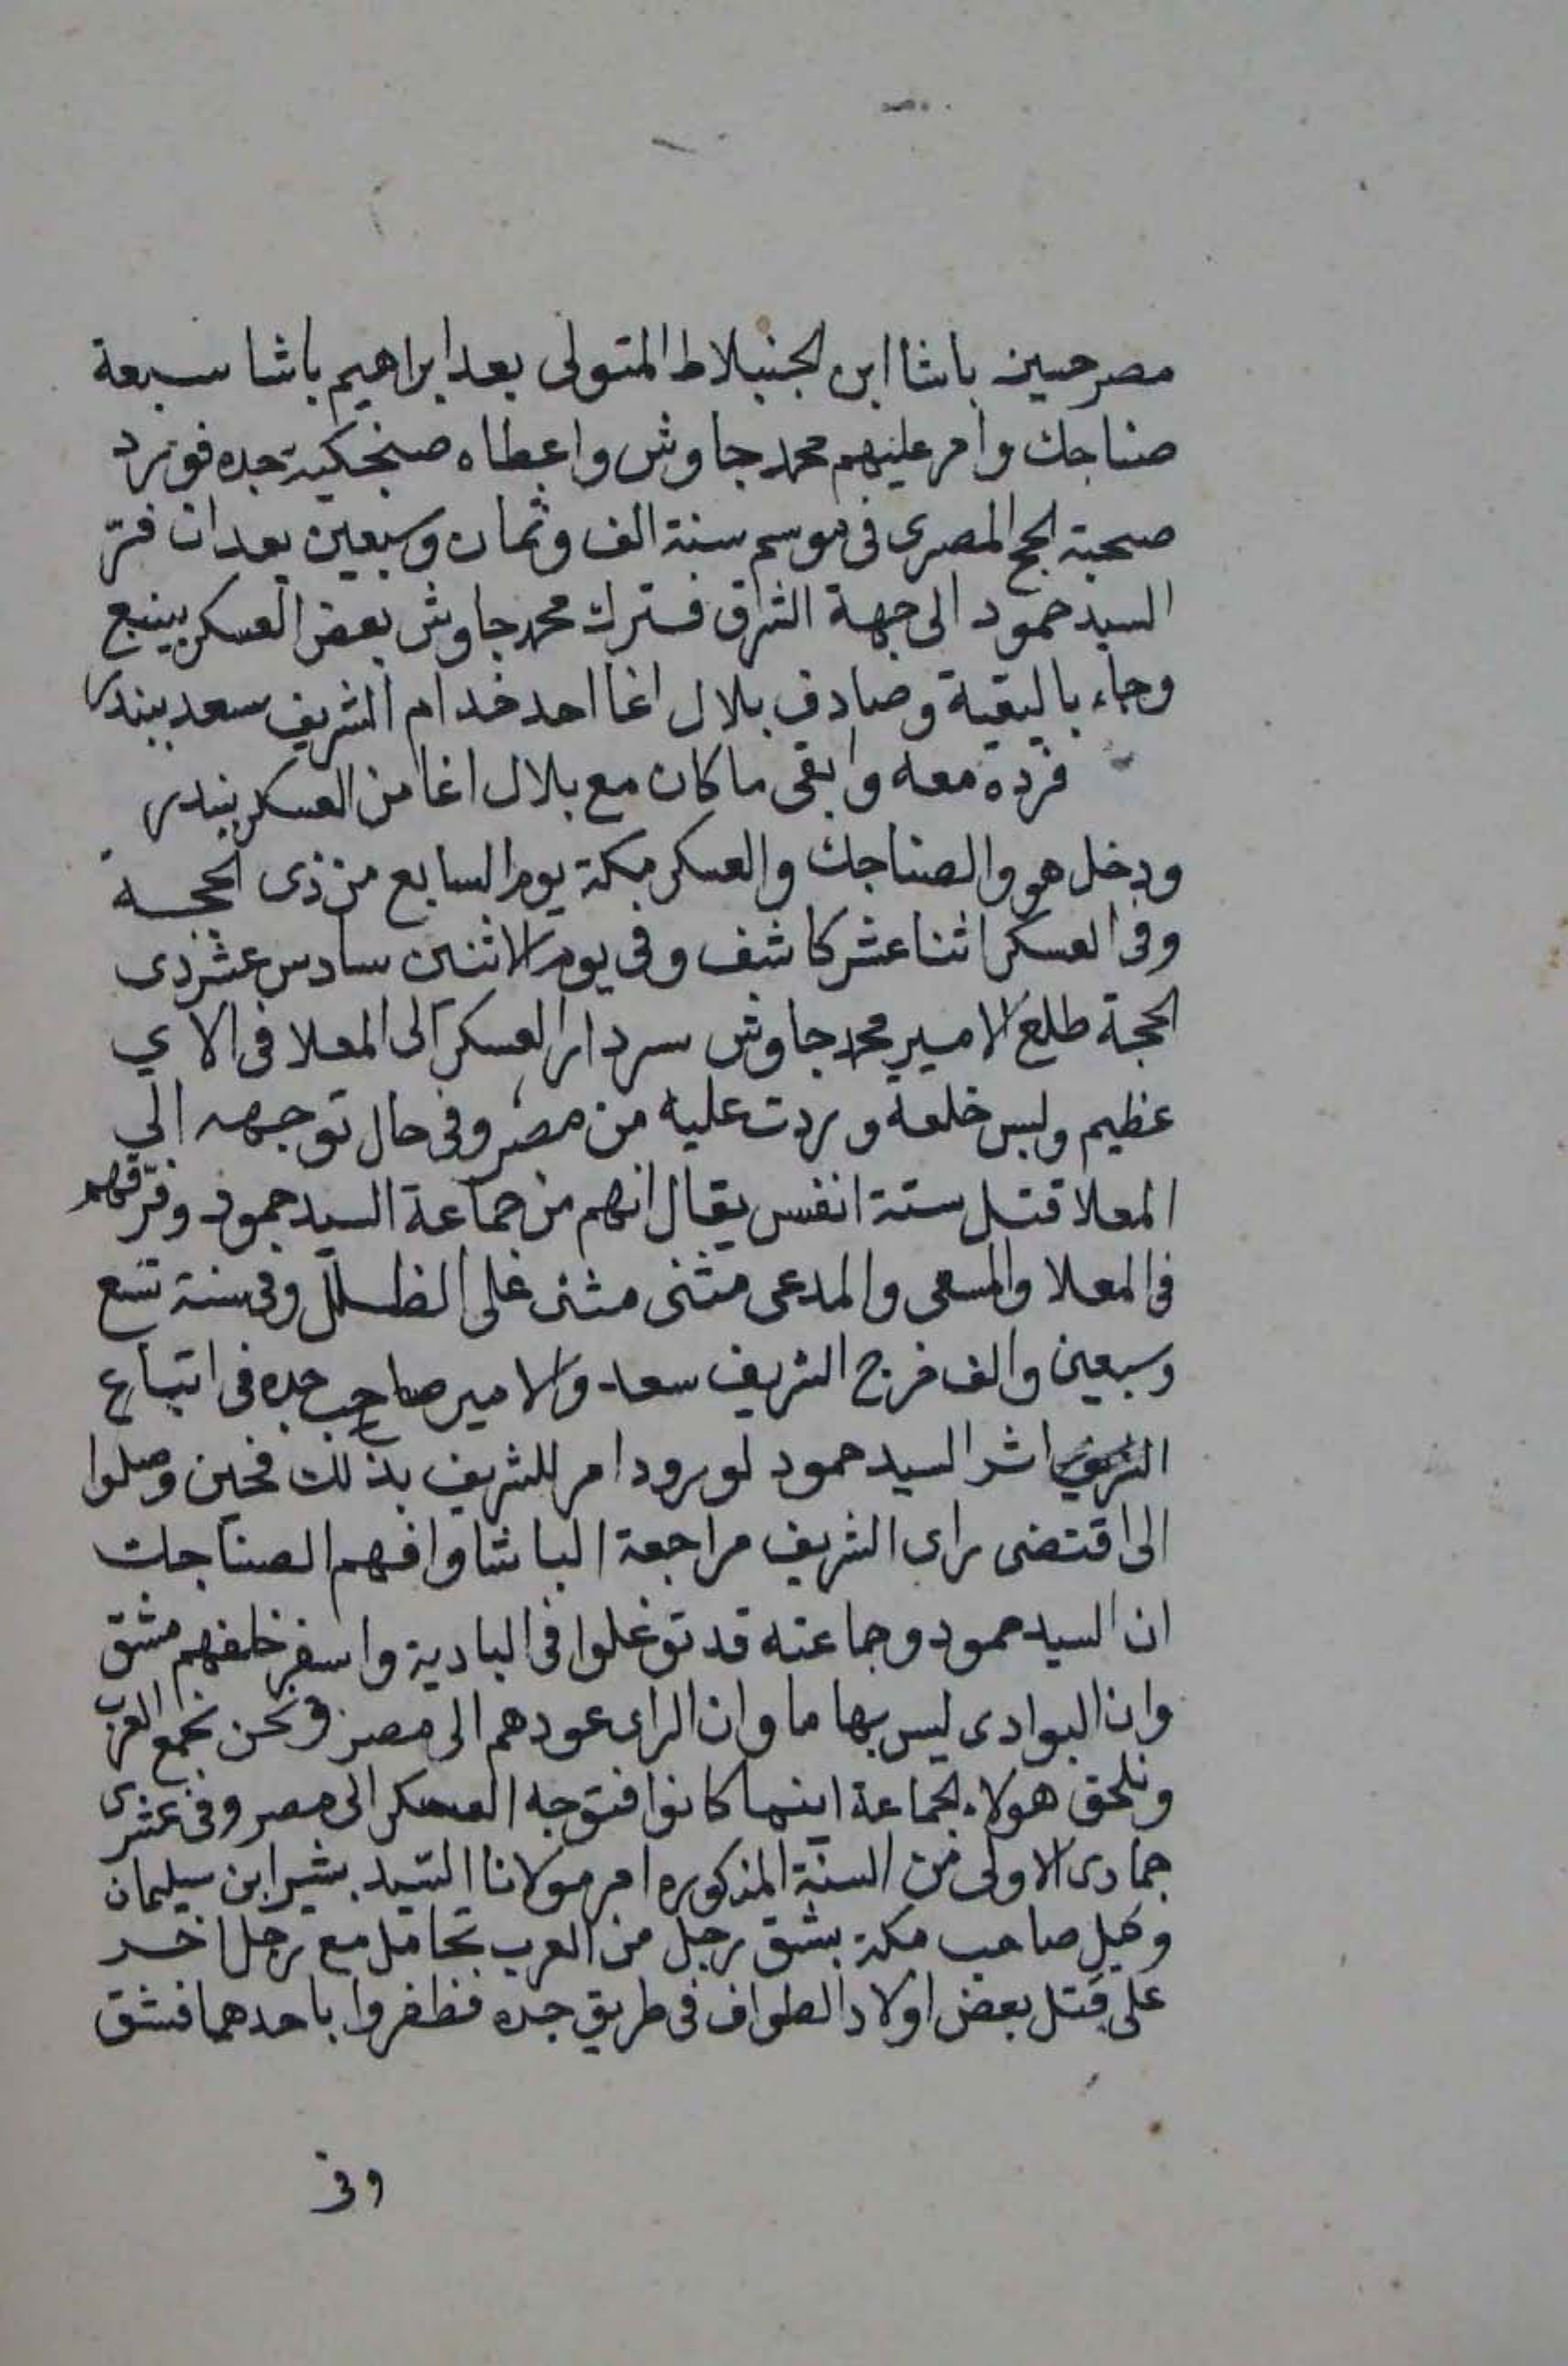 مصر حسين باشا ابن الجنبلاط المتولى بعد ابراهيم باشا سبعة
صناجك وامر عليهم محمد جاوش واعطاه صنجكية جده فورد
صحبة الحج المصرى فى موسم سنة الف وثمان وسبعين بعد ان فرّ
السيد حمود الى جهة الشرق فترك محمد جاوش بعض العسكر بينبع
وجاء بالبقية وصادف بلال اغا احد خدام الشريف سعد ببندر
فرده معه وابقى ما كان مع بلال اغا من العسكر ببندر
ودخل هو والصناجك والعسكر مكة يوم السابع من ذى الحجة
وفى العسكر اثنا عشر كاشف وفى يوم الاثنين سادس عشر ذى
الحجة طلع الامير محمد جاوش سردار العسكر الى المعلا فى الاي
عظيم ولبس خلعة وردت عليه من مصر وفى حال توجهه الي
المعلا قتل ستة انفس يقال انهم من جماعة السيد حمود وفرّقهم
فى المعلا والمسعى والمدعى مثنى مثنى على الظلل وفى سنة تسع
وسبعين والف خرج الشريف سعد والامير صاحب جده فى اتباع
اثر السيد حمود لورود امر للشريف بذلك فحين وصلوا
الى اقتضى راى الشريف مراجعة الباشا وافهم الصناجك
ان السيد حمود وجماعته قد توغلوا فى البادية واسفر خلفهم مشق
وان البوادى ليس بها ما وان الراى عودهم الى مصر ونحن نجمع العرب
ونلحق هولاء الجماعة اينما كانوا فتوجه العسكر الى مصر وفى عشرى
جمادى الاولى من السنة المذكوره امر مولانا السّيد بشير ابن سيلمان
وكيل صاحب مكة بشنق رجل من العرب تحامل مع رجل اخر
على قتل بعض اولاد الطواف فى طريق جده فظفروا باحدهما فشنق
وفى